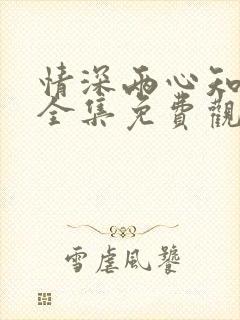 情深兩心知
全集免費觀
雪虐風饕